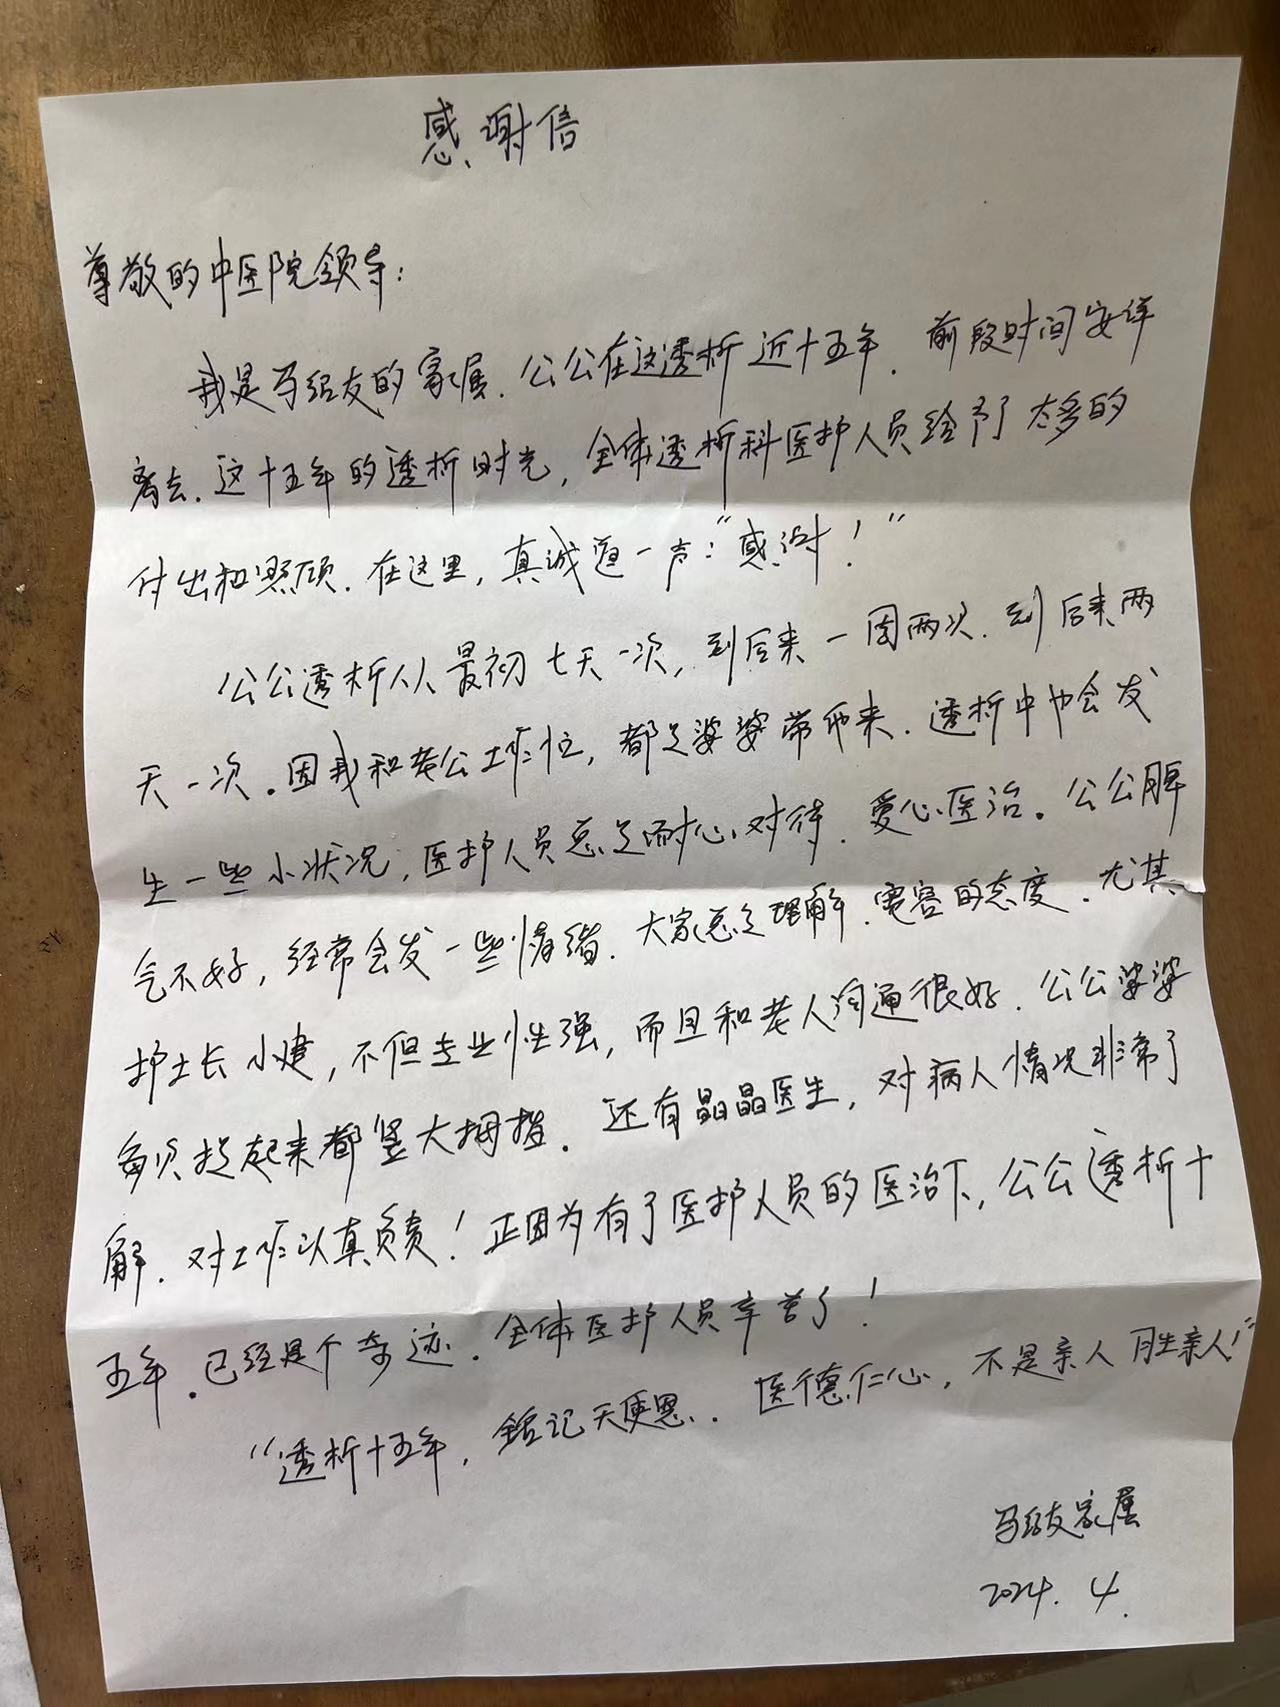 感谢信
尊敬的中医院领导：
我是马绍友的家属.公公在这透析近十五年.前段时间安详
离去.这十五年的透析时光,全体透析科医护人员给予了太多的
付出和照顾.在这里,真诚道一声:“感谢!”
公公透析从最初七天一次,到后来一周两次.到后来两
天一次.因我和老公工作忙,都是婆婆带那来.透析中也会发
生一些小状况,医护人员总是耐心对待.爱心医治。公公脾
气不好,经常会发一些情绪.大家总是理解.宽容的态度.尤其
护士长小建,不但专业性强,而且和老人沟通很好.公公婆婆
每次提起来都竖大拇指.还有晶晶医生,对病人情况非常了
解.对工作认真负责!正因为有了医护人员的医治下,公公透析十
五年.已经是个奇迹.全体医护人员辛苦了!
“透析十五年,铭记天使恩.医德仁心,不是亲人胜亲人!”
马绍友家属
2024.4.